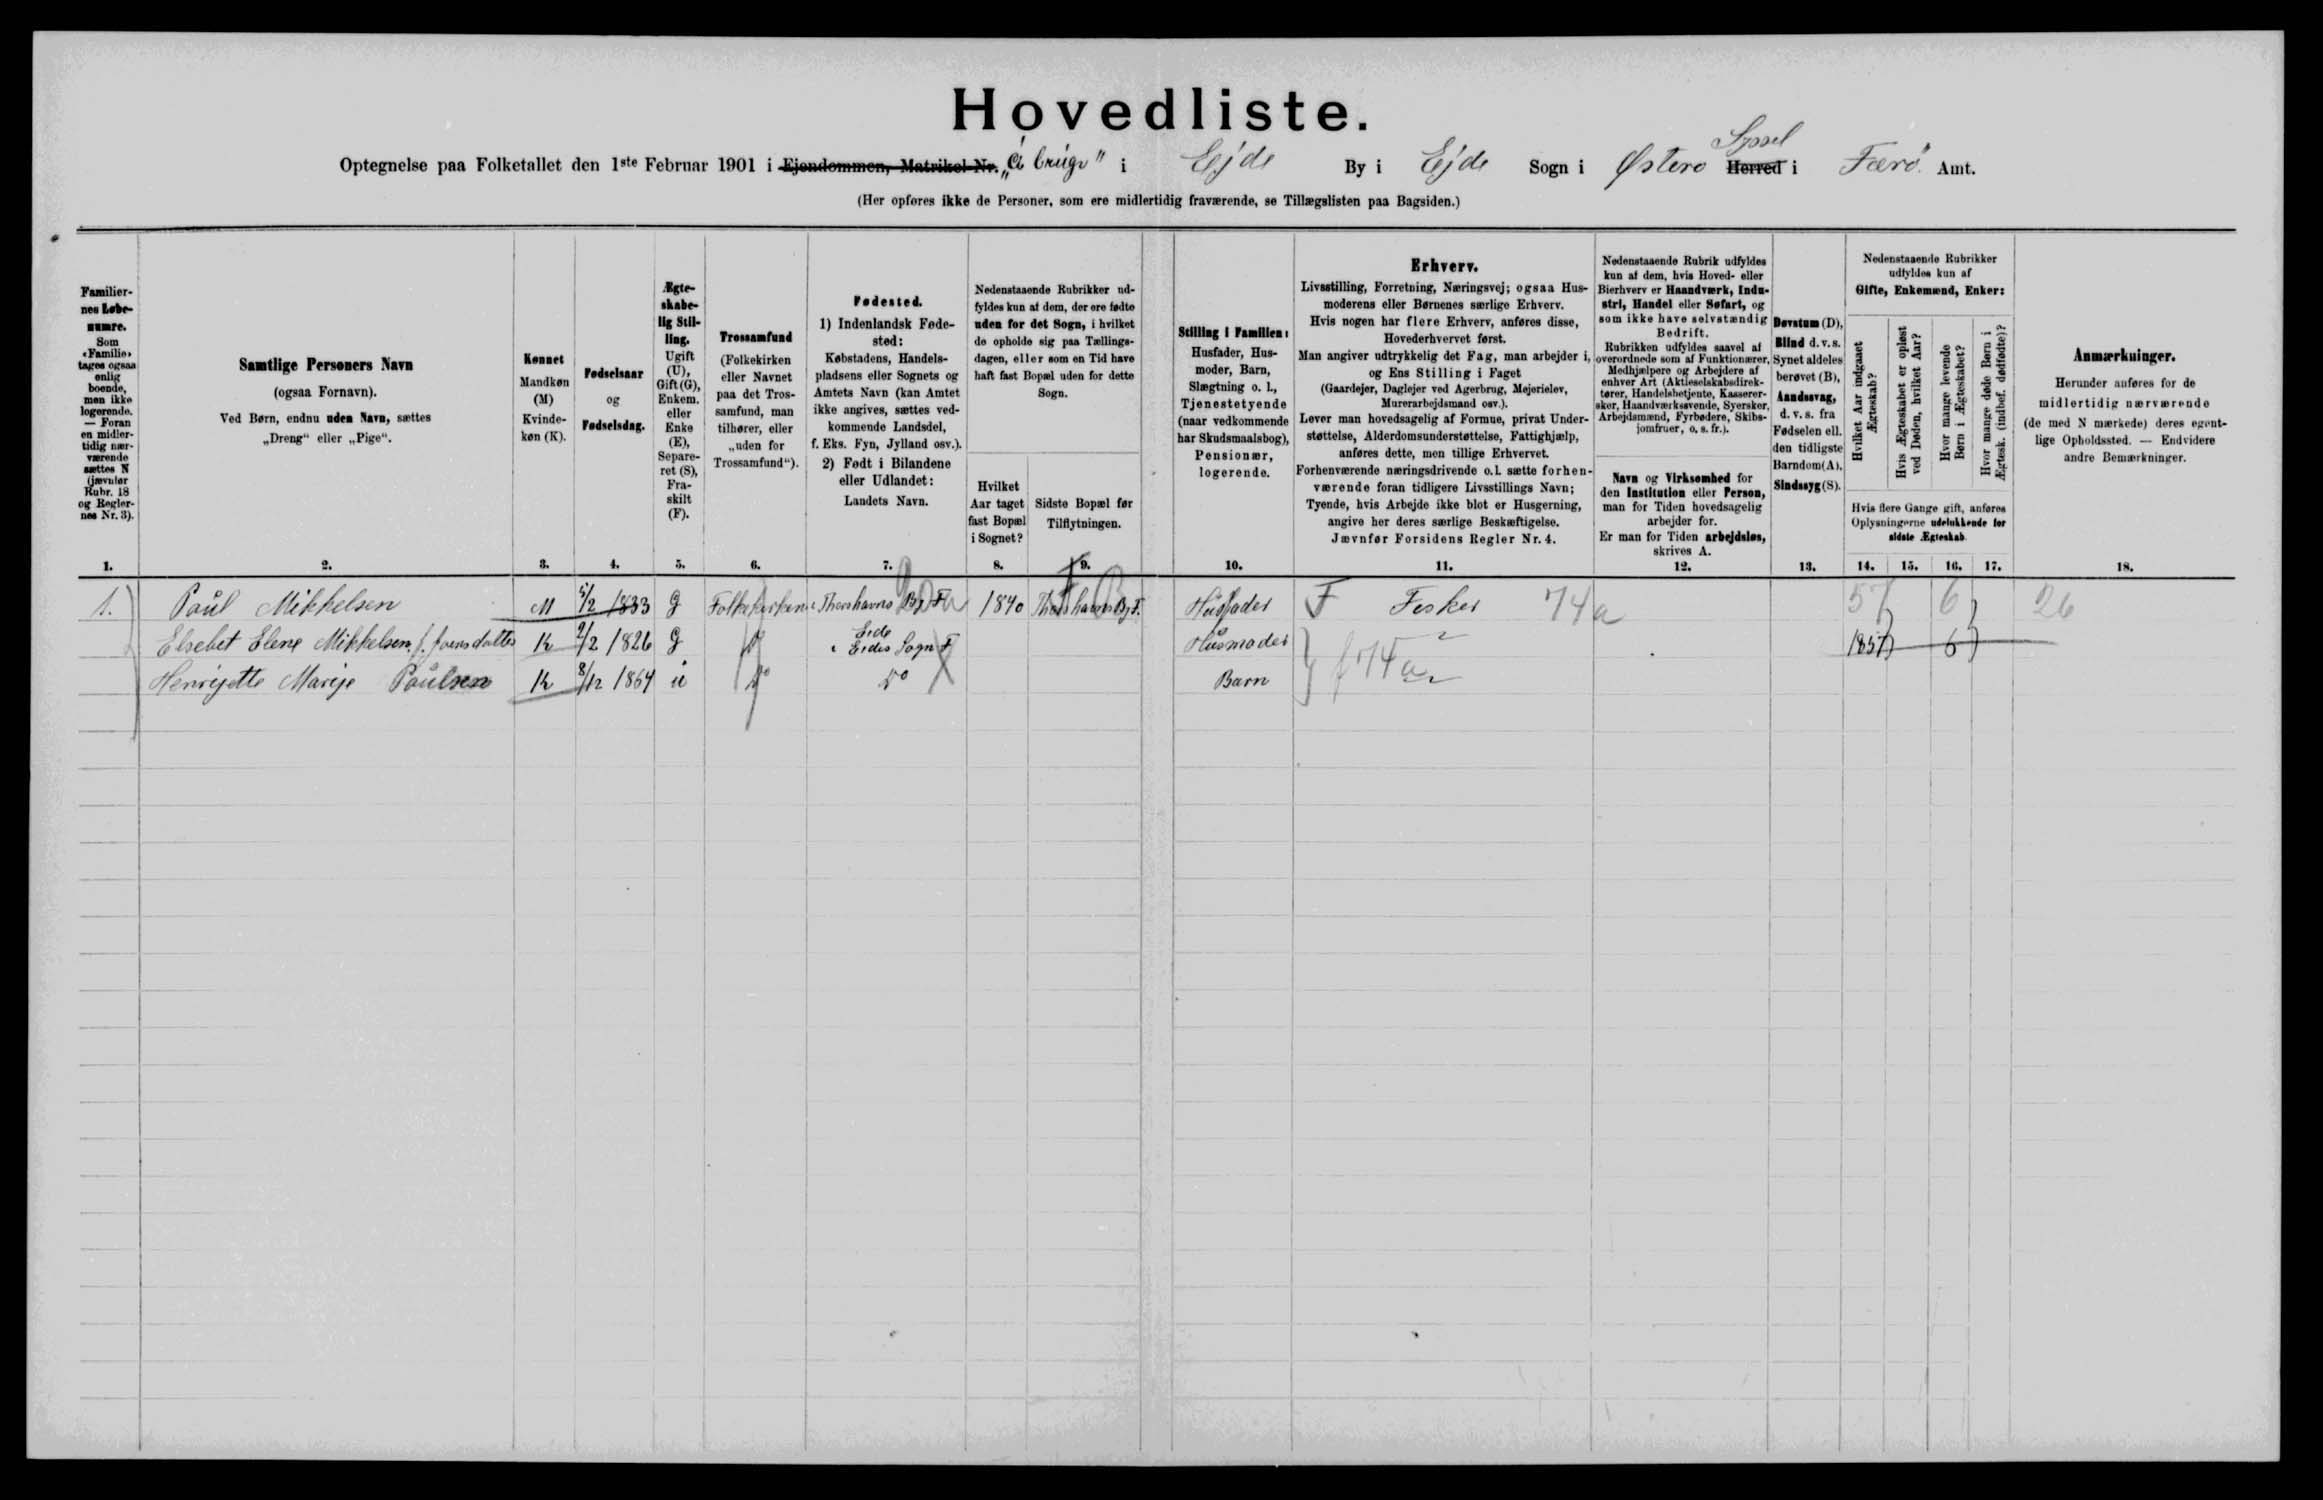 Hovedliste.
Optegnelse paa Folketallet den 1ste Februar 1901 i Ejendommen, Matrikel-Nr. i Ejde By i Ejde Sogn i Østerø Syssel Herred i Færø Amt.
(Her opføres ikke de Personer, som ere midlertidig fraværende, se Tillægslisten paa Bagsiden.)
Familier-
nes Løbe-
numre.
Som
«Familie»
tages ogsaa
enlig
boende,
men ikke
logerende.
— Foran
en midler-
tidig nær-
værende
sættes N
(jævnfør
Rubr. 18
og Regler-
nes Nr. 3).
1.
Samtlige Personers Navn
(ogsaa Fornavn).
Ved Børn, endnu uden Navn, sættes
„Dreng“ eller „Pige“.
2.
Kønnet
Mandkøn
(M)
Kvinde-
køn (K).
3.
Fødselsaar
og
Fødselsdag.
4.
Ægte-
skabe-
lig Stil-
ling.
Ugift
(U),
Gift (G),
Enkem.
eller
Enke
(E),
Separe-
ret (S),
Fra-
skilt
(F).
5.
Trossamfund
(Folkekirken
eller Navnet
paa det Tros-
samfund, man
tilhører, eller
„uden for
Trossamfund“).
6.
Fødested.
1) Indenlandsk Føde-
sted:
Købstadens, Handels-
pladsens eller Sognets og
Amtets Navn (kan Amtet
ikke angives, sættes ved-
kommende Landsdel,
f. Eks. Fyn, Jylland osv.).
2) Født i Bilandene
eller Udlandet:
Landets Navn.
7.
Nedenstaaende Rubrikker ud-
fyldes kun af dem, der ere fødte
uden for det Sogn, i hvilket
de opholde sig paa Tællings-
dagen, eller som en Tid have
haft fast Bopæl uden for dette
Sogn.
Hvilket
Aar taget
fast Bopæl
i Sognet?
8.
Sidste Bopæl før
Tilflytningen.
9.
Stilling i Familien:
Husfader, Hus-
moder, Barn,
Slægtning o. l.,
Tjenestetyende
(naar vedkommende
har Skudsmaalsbog),
Pensionær,
logerende.
10.
Erhverv.
Livsstilling, Forretning, Næringsvej; ogsaa Hus-
moderens eller Børnenes særlige Erhverv.
Hvis nogen har flere Erhverv, anføres disse,
Hovederhvervet først.
Man angiver udtrykkelig det Fag, man arbejder i,
og Ens Stilling i Faget
(Gaardejer, Daglejer ved Agerbrug, Mejerielev,
Murerarbejdsmand osv.).
Lever man hovedsagelig af Formue, privat Under-
støttelse, Alderdomsunderstøttelse, Fattighjælp,
anføres dette, men tillige Erhvervet.
Forhenværende næringsdrivende o.l. sætte forhen-
værende foran tidligere Livsstillings Navn;
Tyende, hvis Arbejde ikke blot er Husgerning,
angive her deres særlige Beskæftigelse.
Jævnfør Forsidens Regler Nr. 4.
11.
Nedenstaaende Rubrik udfyldes
kun af dem, hvis Hoved- eller
Bierhverv er Haandværk, Indu-
stri, Handel eller Søfart, og
som ikke have selvstændig
Bedrift.
Rubrikken udfyldes saavel af
overordnede som af Funktionærer,
Medhjælpere og Arbejdere af
enhver Art (Aktieselskabsdirek-
tører, Handelsbetjente, Kasserer-
sker, Haandværkssvende, Syersker,
Arbejdsmænd, Fyrbødere, Skibs-
jomfruer, o. s. fr.).
Navn og Virksomhed for
den Institution eller Person,
man for Tiden hovedsagelig
arbejder for.
Er man for Tiden arbejdsløs,
skrives A.
12.
Døvstum (D),
Blind d. v. s.
Synet aldeles
berøvet (B),
Aandssvag,
d. v. s. fra
Fødselen ell.
den tidligste
Barndom (A),
Sindssyg (S).
13.
Nedenstaaende Rubrikker
udfyldes kun af
Gifte, Enkemænd, Enker:
Hvilket Aar indgaaet
Ægteskab?
Hvis Ægteskabet er opløst
ved Døden, hvilket Aar?
Hvor mange levende
Børn i Ægteskabet?
Hvor mange døde Børn i
Ægtesk. (indbef. dødfødte)?
Hvis flere Gange gift, anføres
Oplysningerne udelukkende for
sidste Ægteskab.
14. 15. 16. 17.
Anmærkninger.
Herunder anføres for de
midlertidig nærværende
(de med N mærkede) deres egent-
lige Opholdssted. — Endvidere
andre Bemærkninger.
18.
1. Paul Mikkelsen M 5/2 1833 G Folkekirken Thorshavns By F 1840 Thorshavns By F. Husfader F Fisker 74a 57 6 26
Elsebet Elene Mikkelsen f. Joensdatter K 2/2 1826 G Do Eide Eides Sogn F Husmoder 1857 6
Henrijette Marije Paulsen K 8/12 1864 u Do Do Barn f 74a